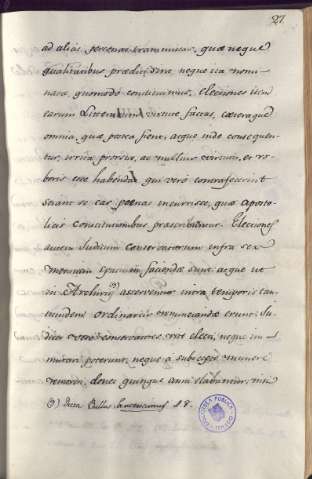 27
ad alias personas transmissas, quæ neque
qualitatibus prædictis neque ita nomi-
natæ, quomodo constituimus, Electiones ista
earum Litterarum virtute factas, cæteraque
omnia, quæ postea fient, atque inde consequen-
tur, irrita prorsus, ac nullius virtutis, et ro-
boris esse habenda qui vero contrafecerint
sciant se eas poenas incurrisse, quæ aposto-
licis Constitutionibus præscribuntur. Electiones
autem Judicum Conservatorum infra sex
mensium spatium faciendæ sunt, atque ut
in Archivijs asserventur intra temporis tan-
tundem ordinarijs renunciandæ erunt: Ju-
dices vero conservatores rite electi, neque im-
mutari poterunt, neque a suscepto munere
removeri, donec quinque anni elabantur, nisi
Dicta Bulla Innocentius 18.
BIBLIOTECA PUBLICA